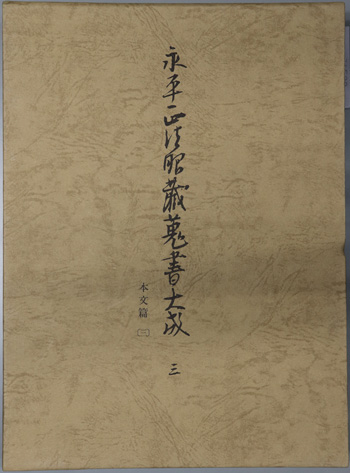 永平正法眼蔵蒐書大成 三
本文篇 〔三〕